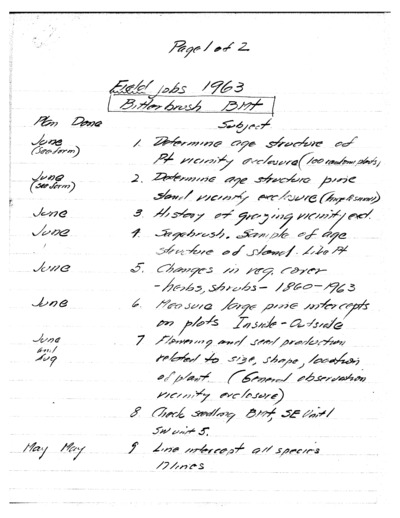 Page 1 of 2
Field jobs 1963
Bitterbrush BMt
Pln Done Subject
June 1. Determine age structure of
(see form) Pt vicinity exclosure (100 random plants)
June 2. Determine age structure pine
(see form) stand vicinity exclosure
June 3 History of grazing vicinity excl.
June 4. Sagebrush. Sample of age
structure of stand. Like Pt
June 5. Changes in veg. cover
- herbs, shrubs - 1860-1963
June 6. Measure large pine intercepts
on plots Inside - Outside
June 7 Flowering and seed production
and related to size, shape, location
Aug of plant. (General observation
vicinity exclosure)
8 Check seedling BMt, SE Unit 1
SW unit 5.
May May 9 Line intercept all species
17 lines